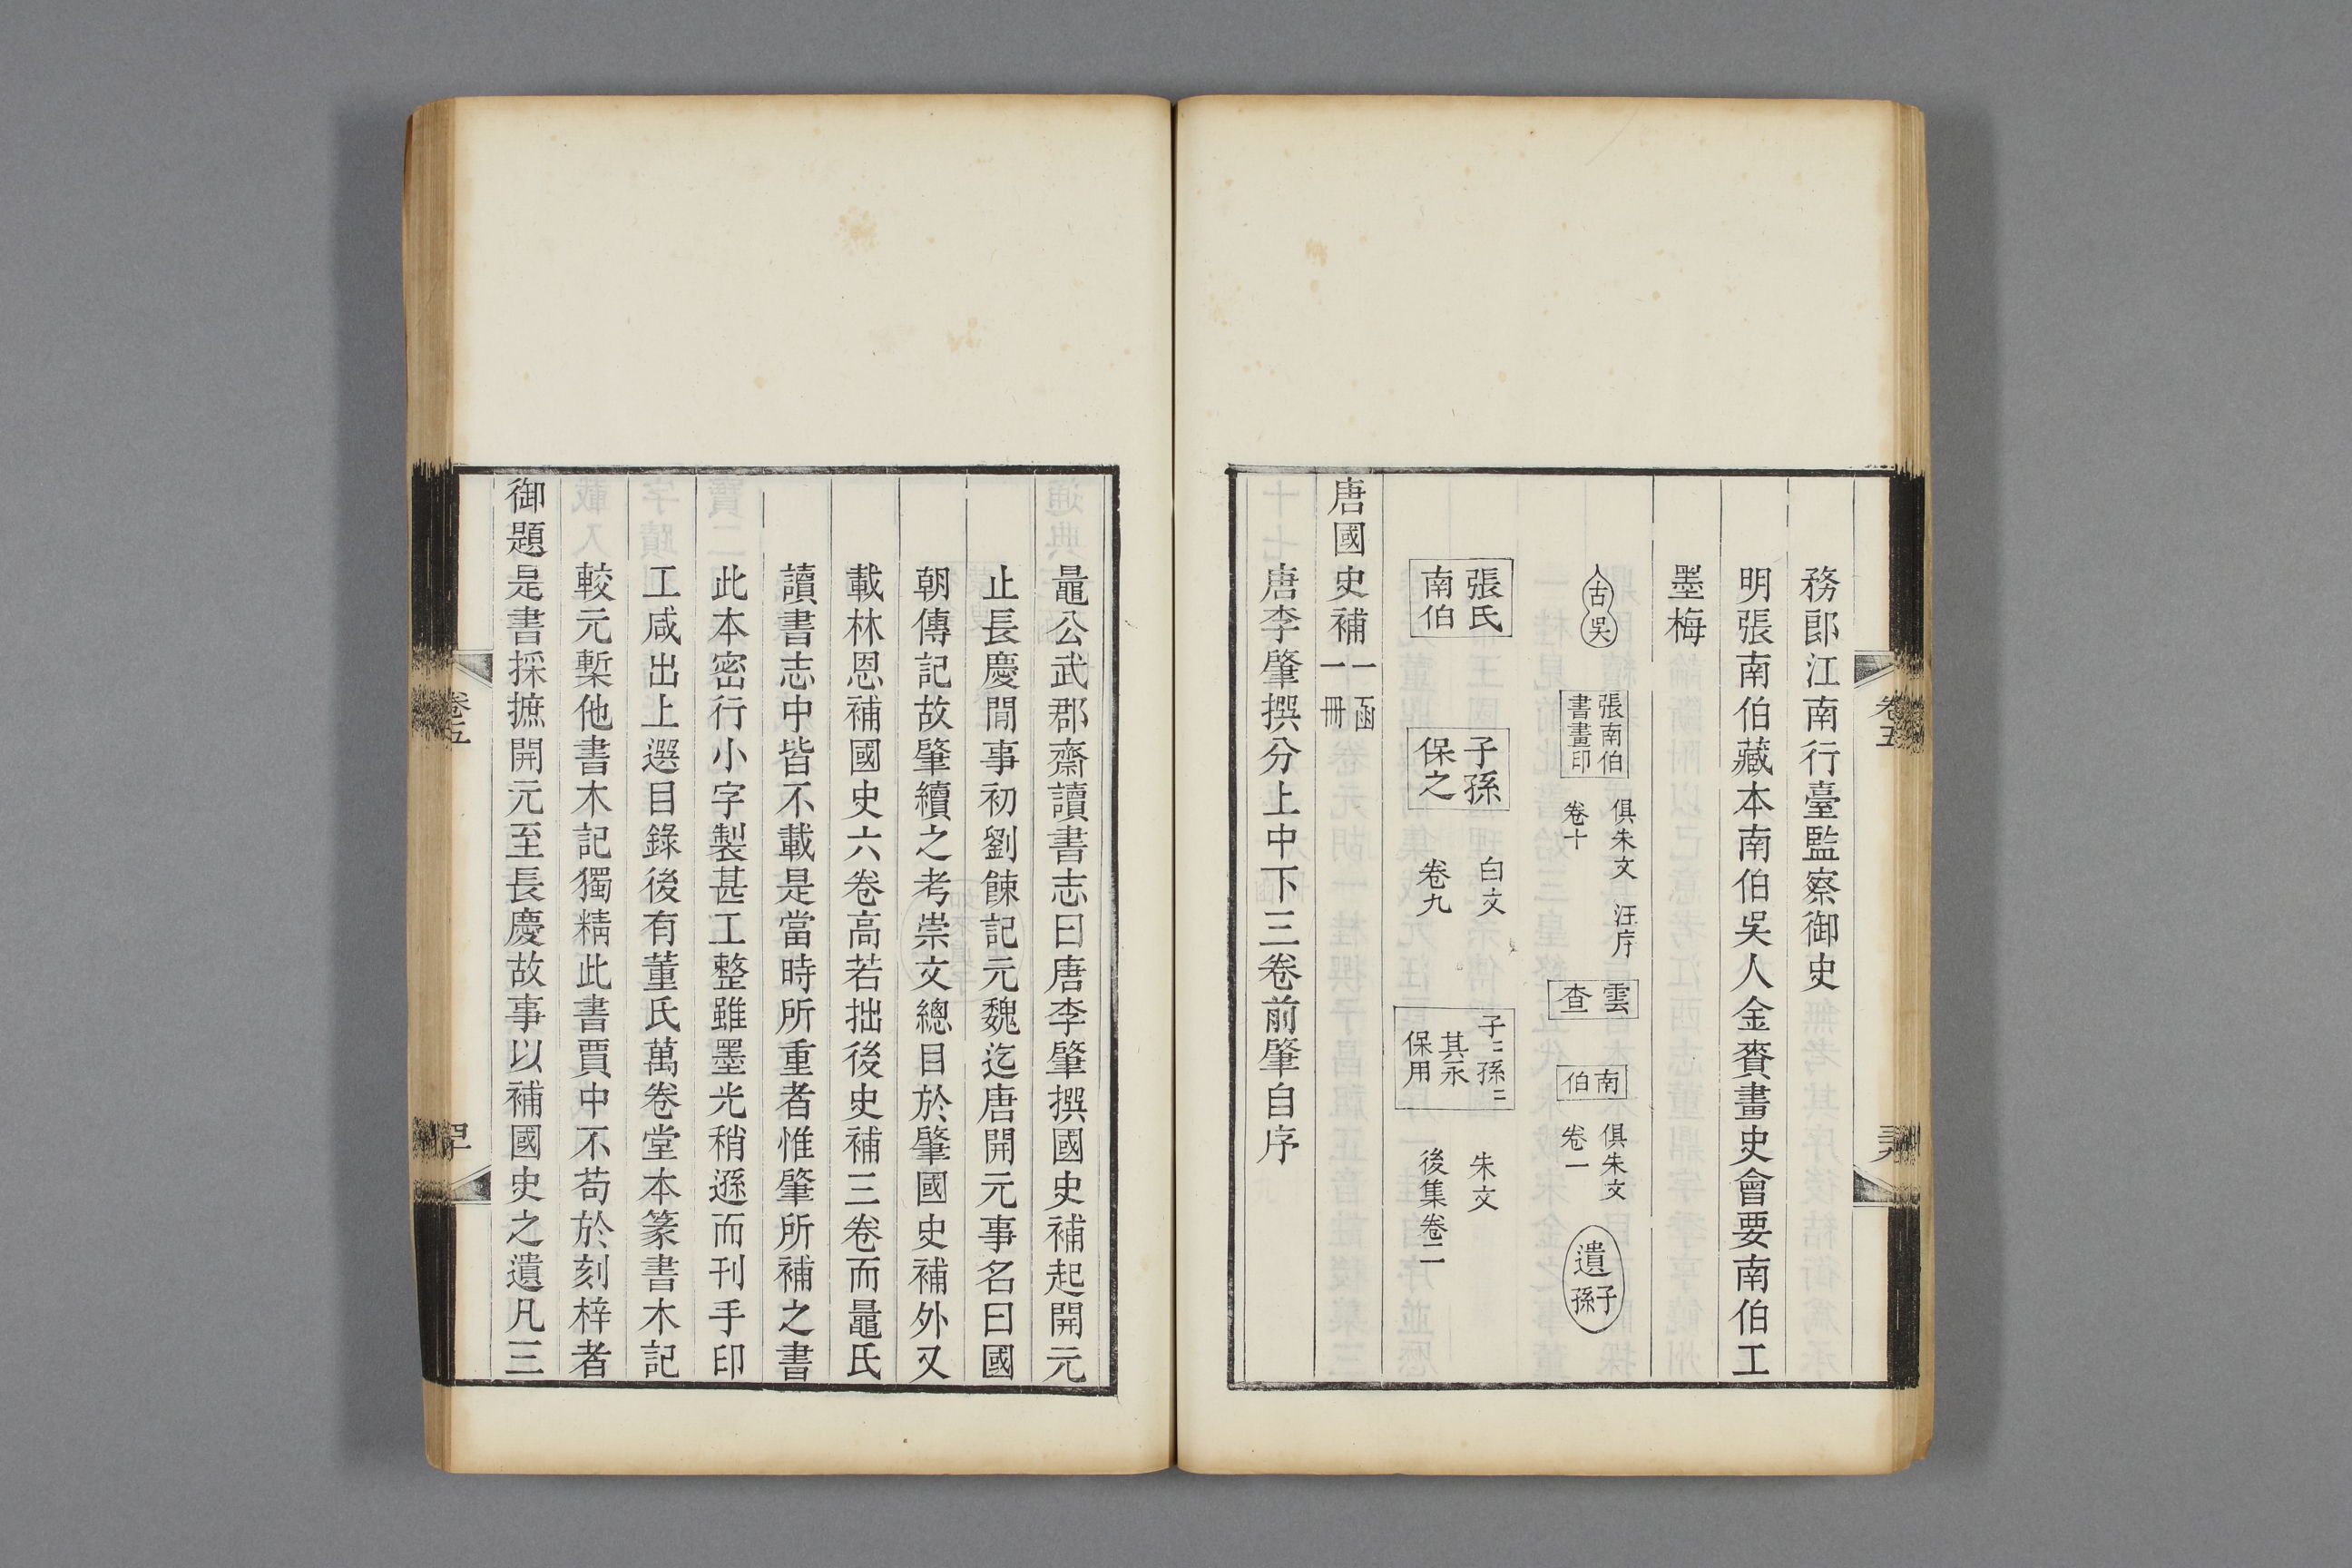 務郎江南行臺監察御史
明張南伯藏本南伯吳人金賚畫史會要南伯工
墨梅
古吳
張南伯書畫印
俱朱文
卷十
汪序
雲查
南伯
俱朱文
卷一
遺子孫
張氏南伯
子孫保之
白文
卷九
子二孫二其永保用
朱文
後集卷二
唐國史補一函一冊
唐李肇撰分上中下三卷前肇自序
卷五
鼂公武郡齋讀書志曰唐李肇撰國史補起開元
止長慶間事初劉餗記元魏迄唐開元事名曰國
朝傳記故肇續之考崇文總目於肇國史補外又
載林恩補國史六卷高若拙後史補三卷而鼂氏
讀書志中皆不載是當時所重者惟肇所補之書
此本密行小字製甚工整雖墨光稍遜而刊手印
工咸出上選目錄後有董氏萬卷堂本篆書木記
較元槧他書木記獨精此書賈中不苟於刻梓者
御題是書採摭開元至長慶故事以補國史之遺凡三
卷五